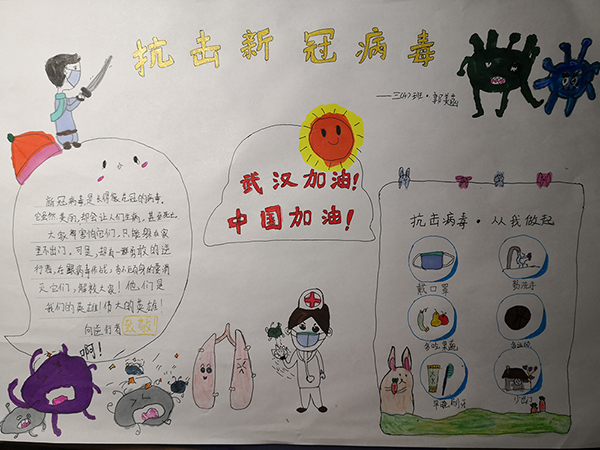 抗击新冠病毒
武汉加油!
中国加油!
新冠病毒是长得像皇冠的病毒.
它虽然美丽,却会让人们生病,甚至死亡.
大家都害怕它们,只能躲在家
里不出门,可是,却有一群勇敢的逆
行者,在跟病毒作战,
灭它们,解救大家!他们是
我们的英雄!伟大的英雄!
向逆行者致敬!
啊!
抗击病毒·从我做起
戴口罩
勤洗手
多吃果蔬
早晚刷牙
少出门